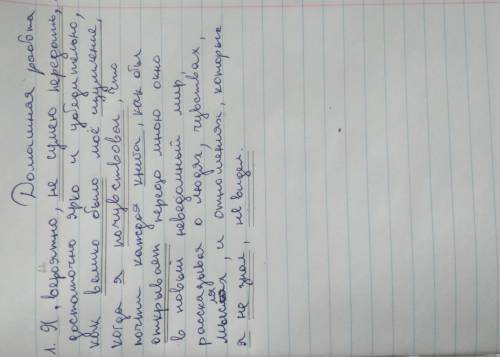 Домашняя работа
1. Я, вероятно, не сумею передать,
достаточно ярко и убедительно,
как велико было моё изумление,
когда я почувствовал, что
почти каждая книга, как бы
открывает передо мною окно
в новый неведомый мир,
рассказывая о людях, чувствах,
мыслях, и отношениях, которых
я не знал, не видел.